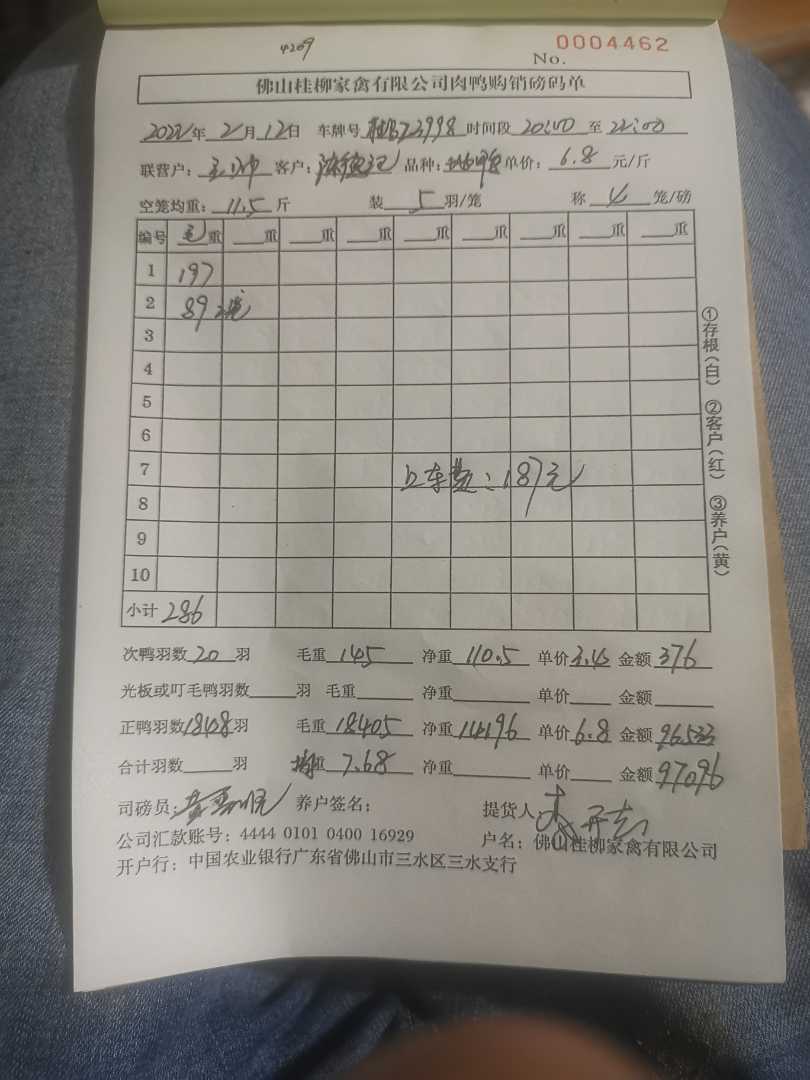 4209
No. 0004462
佛山桂柳家禽有限公司肉鸭购销磅码单
2022年2月12日 车牌号 桂 23998 时间段 20:00 至 22:00
联营户： 客户： 品种： 单价：6.8元/斤
空笼均重：11.5斤 装5羽/笼 称4笼/磅
编号 毛重 重 重 重 重 重 重 重 重
1 197
2 89
3
4
5
6
7 上车费：187元
8
9
10
小计 286
次鸭羽数20羽 毛重145 净重110.5 单价3.4 金额376
光板或叮毛鸭羽数 羽 毛重 净重 单价 金额
正鸭羽数1848羽 毛重18405 净重14196 单价6.8 金额96533
合计羽数 羽 均重7.68 净重 单价 金额97096
司磅员： 养户签名： 提货人：
公司汇款账号：4444 0101 0400 16929 户名：佛山桂柳家禽有限公司
开户行：中国农业银行广东省佛山市三水区三水支行
①存根(白) ②客户(红) ③养户(黄)